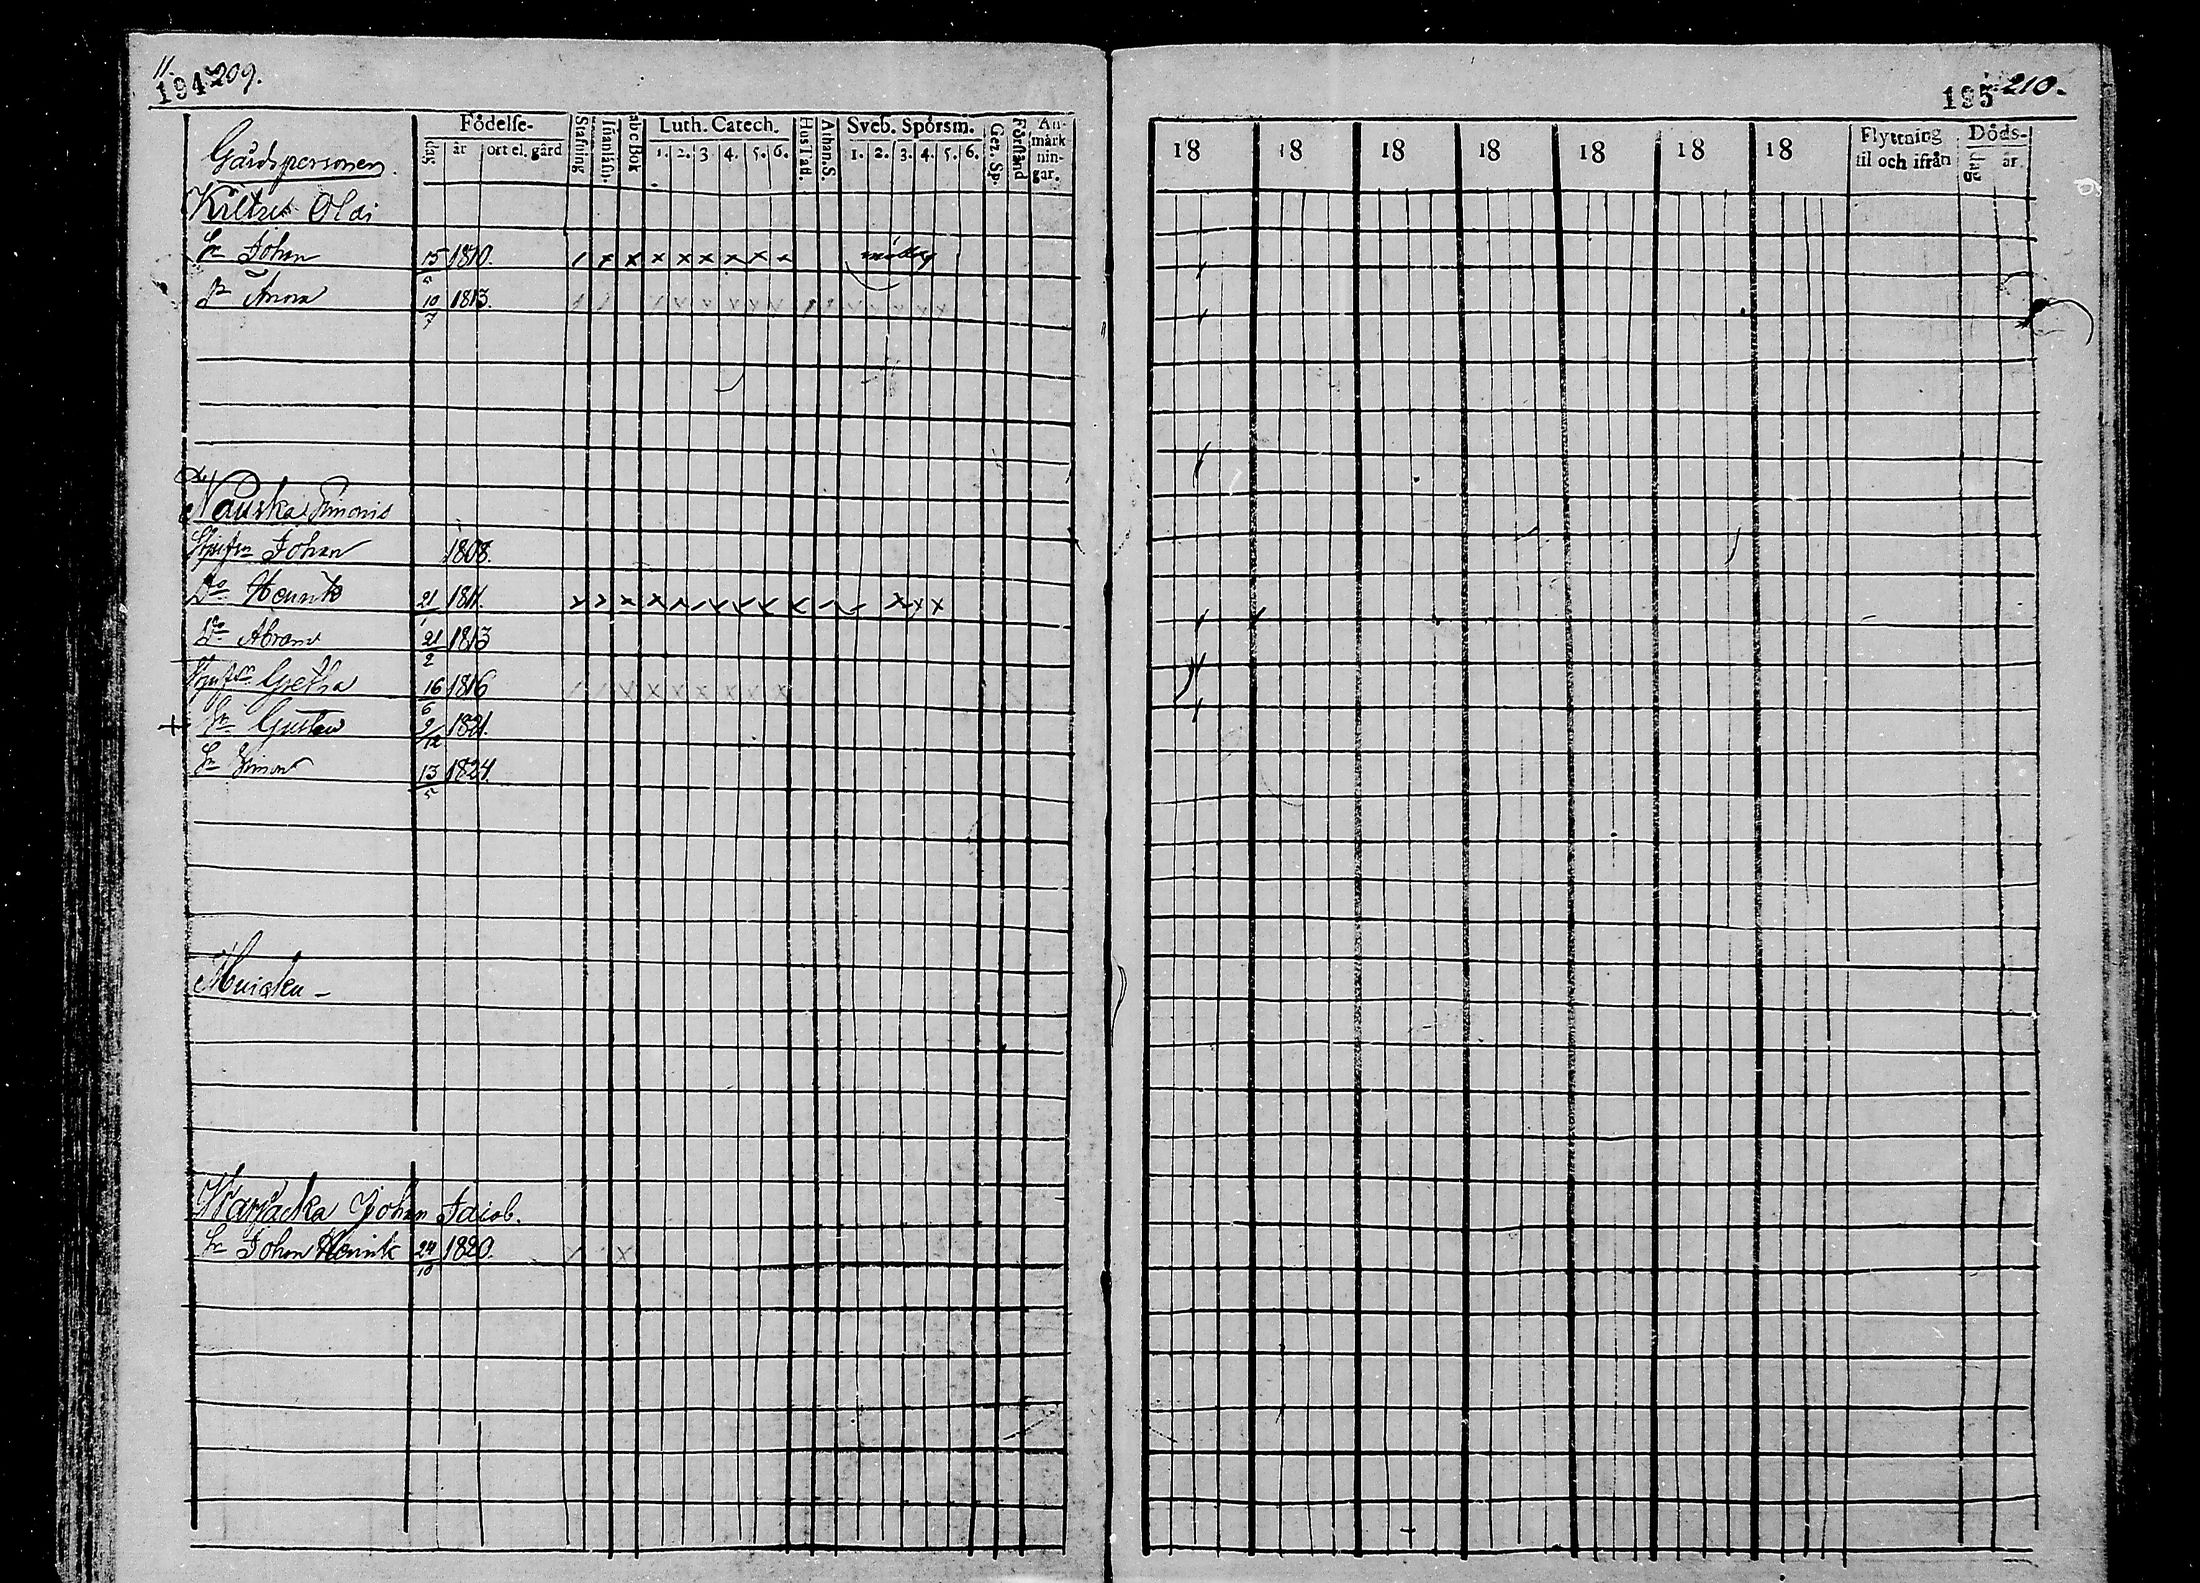 11.
194 209.
Gårdspersoner.
Födelse-
dag år ort el. gård
Stafning
Innanläsn.
abc Bok
Luth. Catech.
1. 2. 3 4. 5. 6.
Hus Taf.
Athan. S.
Sveb. Spörsm.
1. 2. 3. 4. 5. 6.
Gez. Sp.
Förstånd
An-
märk
nin-
gar.
Oldi
Sn Johan 15/5 1810. / x x x x x x x x
Dr Anna 10/7 1813.
Simonis
Johan 1808.
Do Henrik 21/1 1811.
Do Abram 21/2 1813
Gretha 16/6 1816
+ Sn Gustav 9/12 1821.
Sn Simon 13/5 1824.
Johan Jacob.
Sn Johan Henrik 24/10 1820.
195 210.
18 18 18 18 18 18 18
Flyttning
til och ifrån
Döds-
dag år.